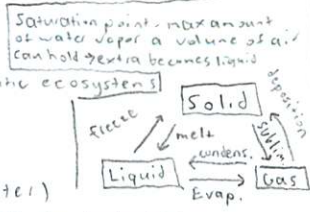 Saturation point - max amount
of water vapor a volume of air
can hold → extra becomes liquid
tic ecosystems
Solid
freeze
melt
deposition
sublim
condens.
Liquid
Gas
Evap.
ter)